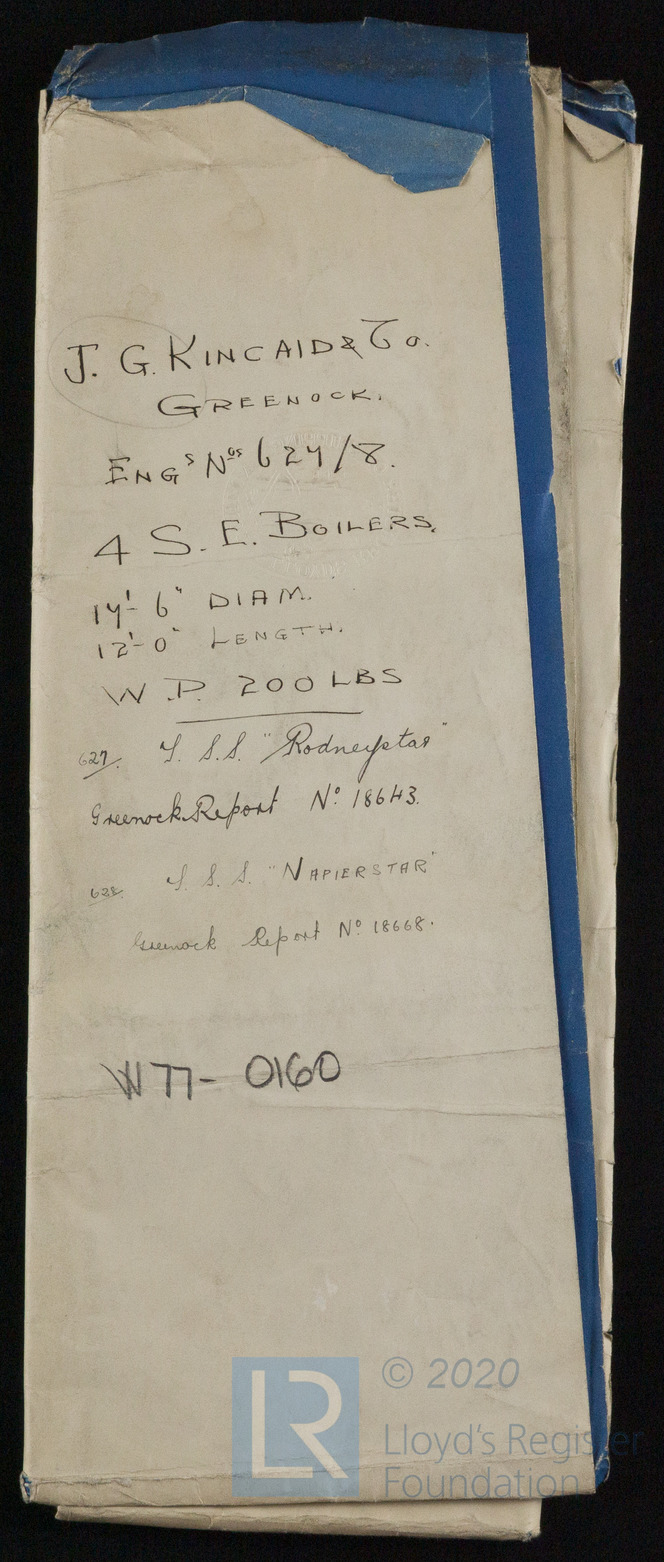 J. G. KINCAID & Co.
GREENOCK.
ENGˢ Nᵒˢ 627/8.
4 S. E. BOILERS.
14'-6" DIAM.
12'-0" LENGTH.
W. P. 200 LBS
627/. T. S.S. "Rodneystar"
Greenock Report Nº 18643.
628/. T. S. S. "NAPIERSTAR"
Greenock Report Nº 18668.
W77- 0160
LR
© 2020
Lloyd's Register
Foundation